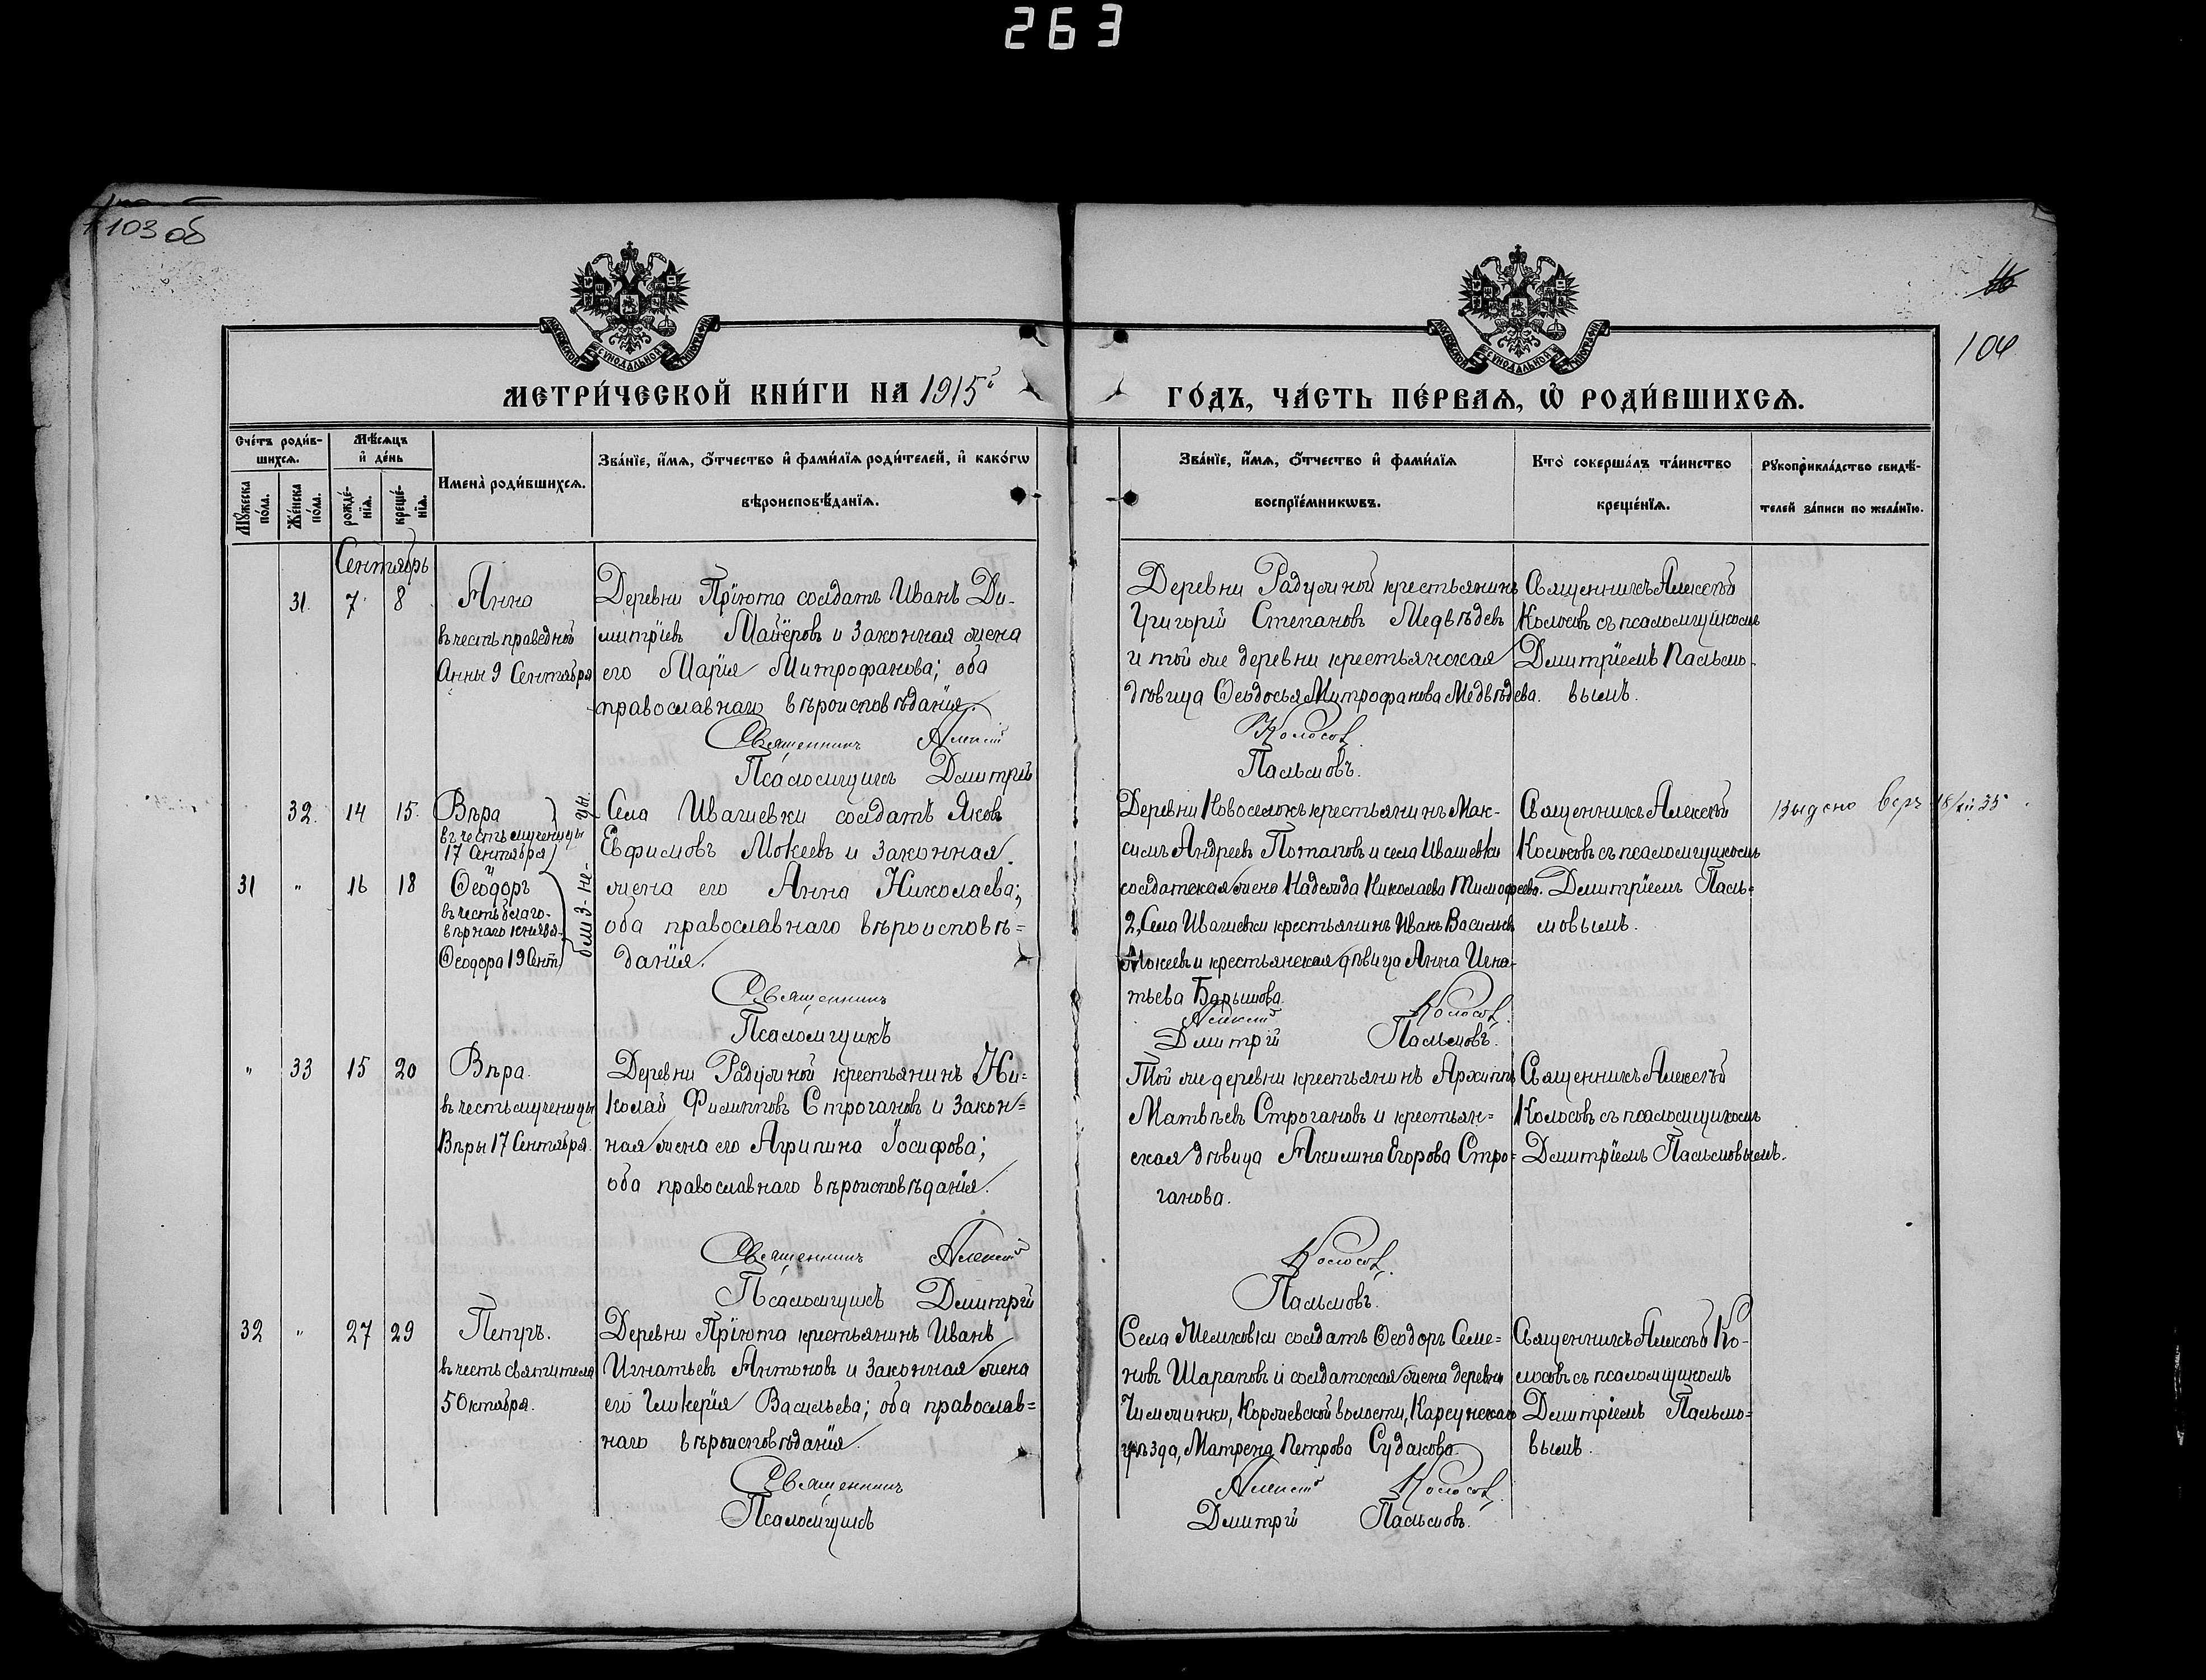 263
103 об
104
МОСКОВСКОЙ СѴНОДАЛЬНОЙ ТИПОГРАФІИ
МОСКОВСКОЙ СѴНОДАЛЬНОЙ ТИПОГРАФІИ
МЕТРИ́ЧЕСКОЙ КНИ́ГИ НА 1915й
ГО́ДЪ, ЧА́СТЬ ПЕ́РВАѦ, Ѽ РОДИ́ВШИХСѦ.
Сче́тъ роди́в-
шихсѧ.
Мꙋ́жеска по́ла.
Же́нска по́ла.
Мѣ́сѧцъ
и҆ де́нь
рожде́-
нїѧ.
креще́-
нїѧ.
Имена̀ роди́вшихсѧ.
Зва́нїе, и҆́мѧ, ѻ҆́тчество и҆ фами́лїѧ роди́телей, и҆ како́гѡ
вѣроисповѣ́данїѧ.
Зва́нїе, и҆́мѧ, ѻ҆́тчество и҆ фами́лїѧ
воспрїе́мникѡвъ.
Кто̀ соверша́лъ та́инство
креще́нїѧ.
Рꙋкоприкла́дство свидѣ́-
телей за́писи по жела́нїю.
Сентябрь
31. 7. 8. Анна
въ честь праведной
Анны 9 Сентября
Деревни Пріюта солдатъ Иванъ Ди-
митріевъ Майёровъ и законная жена
его Марія Митрофанова; оба
православнаго вѣроисповѣданія.
Священникъ Алексій
Псаломщикъ Дмитрій
Деревни Радужной крестьянинъ
Григорій Степановъ Медвѣдевъ
и той же деревни крестьянская
дѣвица Ѳеодосья Митрофанова Медвѣдева.
Колосовъ.
Пальмовъ.
Священникъ Алексѣй
Колосовъ съ псаломщикомъ
Дмитріемъ Пальмо-
вымъ.
32. 14 15. Вѣра
въ честь мученицы
17 Сентября
31 " 16 18 Ѳеодоръ
въ честь благо-
вѣрнаго князя
Ѳеодора 19 Сент.
близ-не-цы.
Села Ивашевки солдатъ Яковъ
Евфимовъ Мокеевъ и законная
жена его Анна Николаева;
оба православнаго вѣроисповѣ=
данія.
Священникъ
Псаломщикъ
Деревни Новоселокъ крестьянинъ Мак-
симъ Андреевъ Потаповъ и села Ивашевки
солдатская жена Надежда Николаева Тимофеева.
2, Села Ивашевки крестьянинъ Иванъ Васильевъ
Мокеевъ и крестьянская дѣвица Анна Игна-
тьева Барышова.
Алексій Колосовъ.
Дмитрій Пальмовъ.
Священникъ Алексѣй
Колосовъ съ псаломщикомъ
Дмитріемъ Паль-
мовымъ.
Выдано 18/XII 35
" 33 15 20 Вѣра.
въ честь мученицы
Вѣры 17 Сентября.
Деревни Радужной крестьянинъ Ни=
колай Филипповъ Строгановъ и закон=
ная жена его Агрипина Іосифова;
оба православнаго вѣроисповѣданія.
Священникъ Алексій
Псаломщикъ Дмитрій
Той же деревни крестьянинъ Архиппъ
Матвѣевъ Строгановъ и крестьян=
ская дѣвица Акилина Егорова Стро=
ганова.
Колосовъ.
Пальмовъ.
Священникъ Алексѣй
Колосовъ съ псаломщикомъ
Дмитріемъ Пальмовымъ.
32 " 27 29 Петръ.
въ честь святителя
5 Октября.
Деревни Пріюта крестьянинъ Иванъ
Игнатьевъ Антоновъ и законная жена
его Гликерія Васильева; оба православ=
наго вѣроисповѣданія.
Священникъ
Псаломщикъ
Села Меловки солдатъ Ѳеодоръ Семе=
новъ Шараповъ и солдатская жена деревни
волости, Карсунскаго
уѣзда, Матрена Петрова Судакова.
Алексій Колосовъ.
Дмитрій Пальмовъ.
Священникъ Алексѣй Ко-
лосовъ съ псаломщикомъ
Дмитріемъ Пальмо=
вымъ.